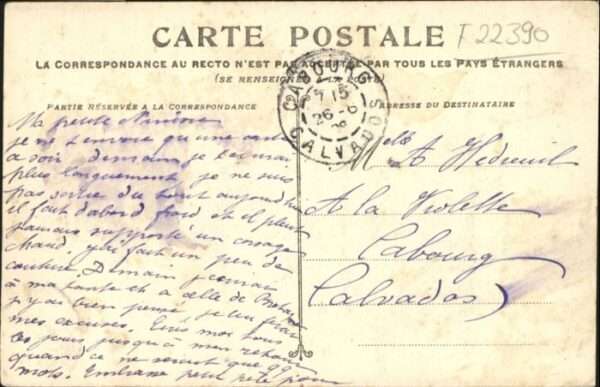 CARTE POSTALE
T 22390
LA CORRESPONDANCE AU RECTO N'EST PAS ACCEPTÉE PAR TOUS LES PAYS ÉTRANGERS
(SE RENSEIGNER À LA POSTE)
PARTIE RÉSERVÉE A LA CORRESPONDANCE
ADRESSE DU DESTINATAIRE
CABOURG
26-6
CALVADOS
Ma petite
je ne t'envoie qu'une carte
a soir demain je t'ecrirai
plus longuement je ne suis
pas sortie du tout aujourd'hui
il fait d'abord froid et il pleut
jamais supporté un corsage
chaud. j'ai fait un peu de
couture. Demain j'ecrirai
à ma tante et à celle de
j'y ai bien pensé je lui ferai
mes excuses. Ecris moi tous
les jours jusqu'à mon retour
quand ce ne serait que qq
mots. Embrasse petit père pour
Melle A Hedreuil
A la Violette
Cabourg
Calvados